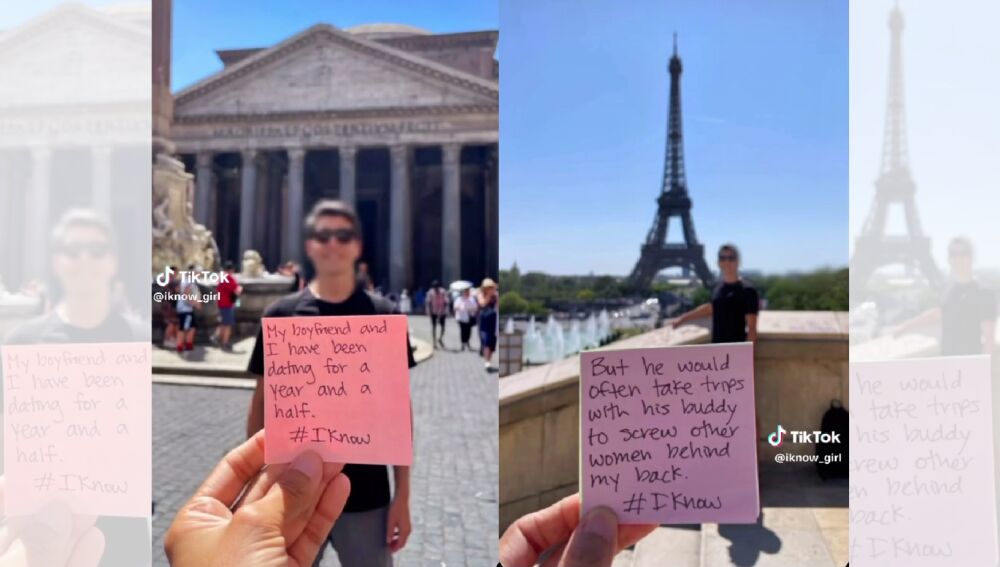 My boyfriend and
I have been
dating for a
year and a
half.
#IKnow
TikTok
@iknow_girl
But he would
often take trips
with his buddy
to screw other
women behind
my back.
#IKnow
TikTok
@iknow_girl
My boyfriend and
I have been
dating for a
year and a
half.
#IKnow
he would
take trips
his buddy
rew other
en behind
back.
#IKnow